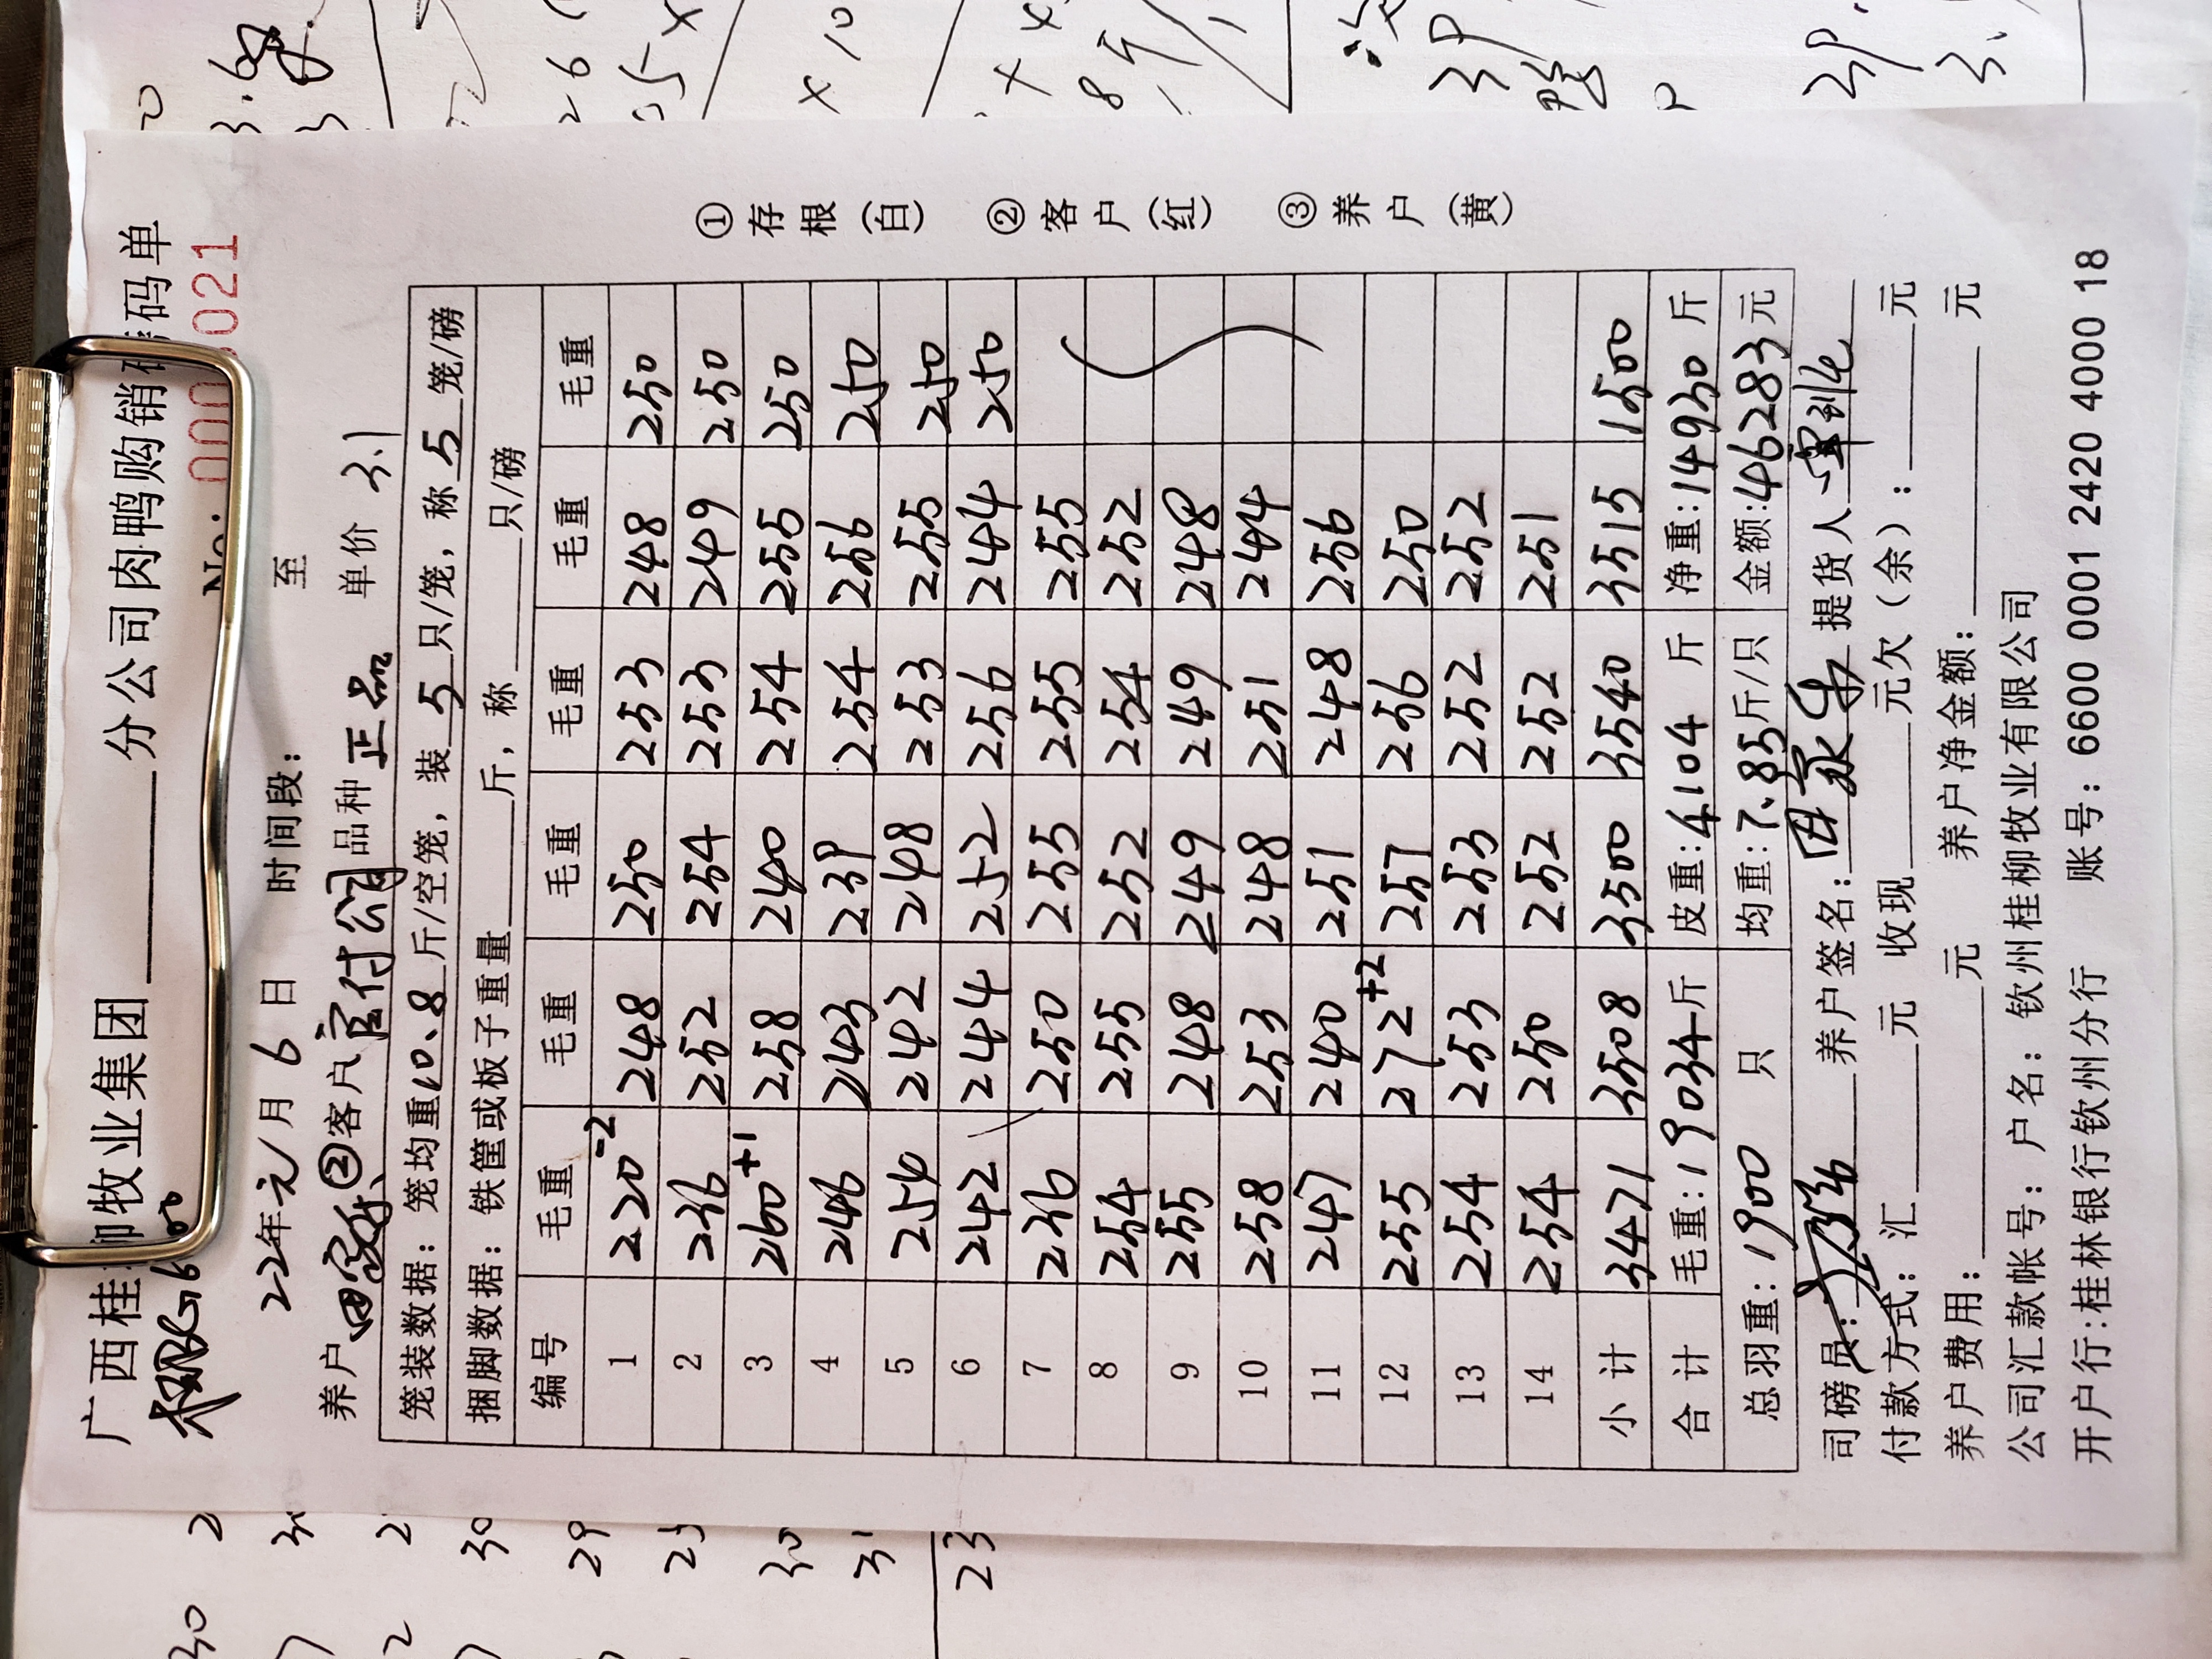 广西桂柳牧业集团______分公司肉鸭购销磅码单
No: 000 3021
22年元月6日 时间段: 至
养户田家乐②客户 品种正品 单价 3.1
笼装数据: 笼均重10.8斤/空笼, 装5只/笼, 称5笼/磅
捆脚数据: 铁筐或板子重量______斤, 称______只/磅
编号 毛重 毛重 毛重 毛重 毛重 毛重
1 220-2 248 250 253 248 250
2 236 252 254 253 249 250
3 260+1 258 240 254 255 250
4 246 243 239 254 256 250
5 254 242 248 253 255 250
6 242 244 252 256 244 250
7 236 250 255 255 255
8 254 255 252 254 252
9 255 248 249 249 248
10 258 253 248 251 244
11 247 240 251 248 256
12 255 272+2 257 256 250
13 254 253 253 252 252
14 254 250 252 252 251
小计 3471 3508 3500 3540 3515 1500
合计 毛重:19034斤 皮重:4104 斤 净重:14930 斤
总羽重: 1900 只 均重:7.85斤/只 金额:46283元
司磅员: 养户签名: 田家乐 提货人
付款方式: 汇______元 收现______元欠(余): ______元
养户费用: ______元 养户净金额: ______元
公司汇款帐号: 户名: 钦州桂柳牧业有限公司
开户行:桂林银行钦州分行 账号: 6600 0001 2420 4000 18
①存根(白) ②客户(红) ③养户(黄)